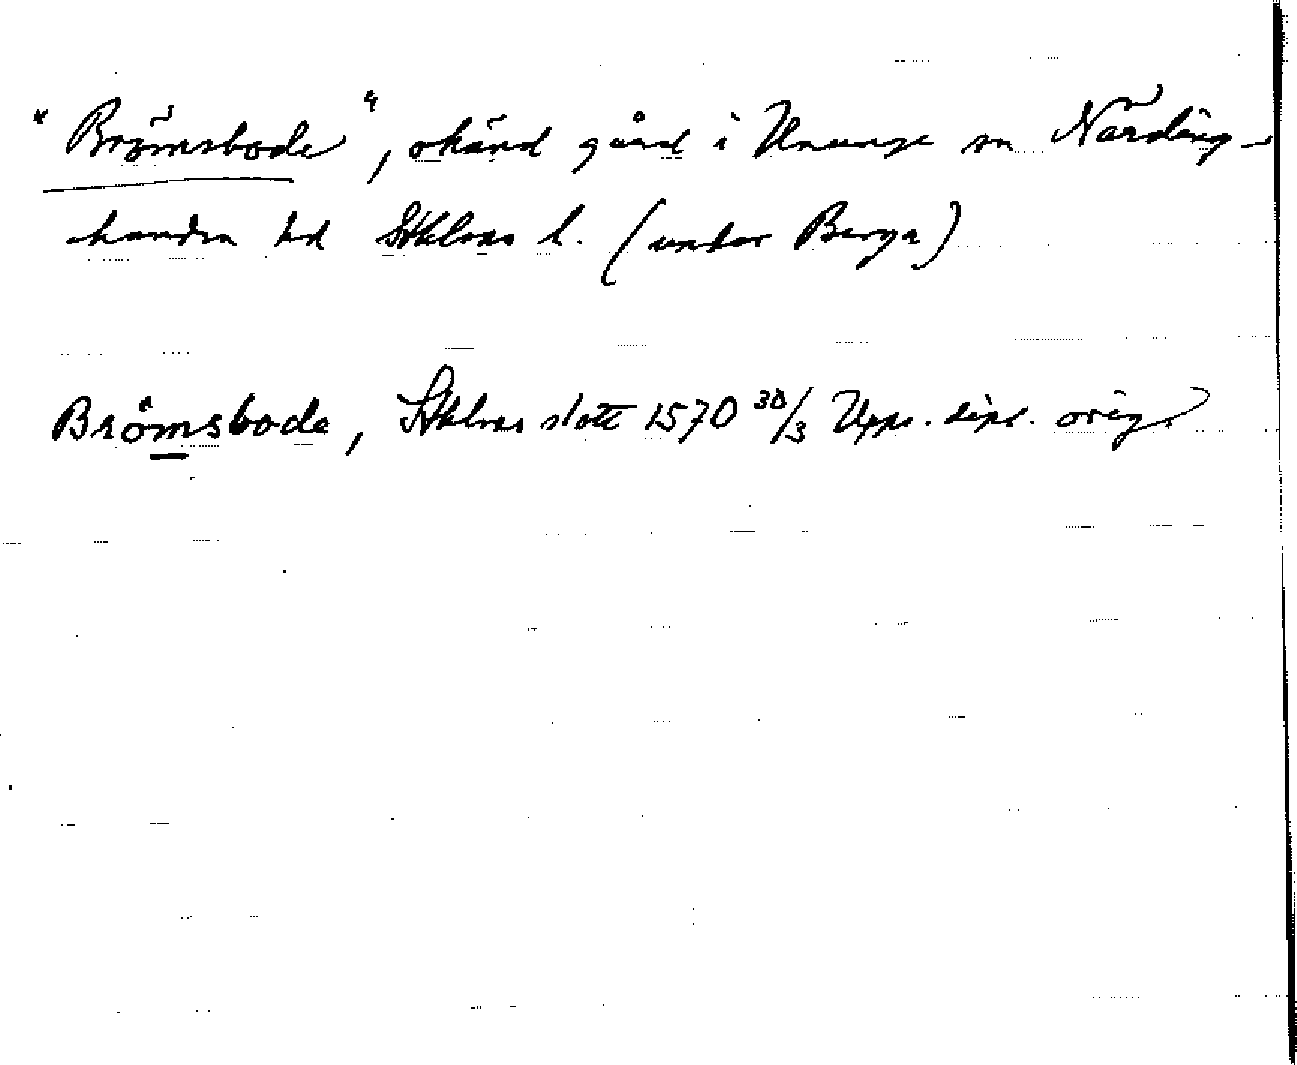 "Brömsbode", okänd gård i Ununge sn Närding-
hundra hd Sthlms l. (under Berga)
Brömsbode, Sthlms slott 1570 30/3 Upps. dipl. orig.